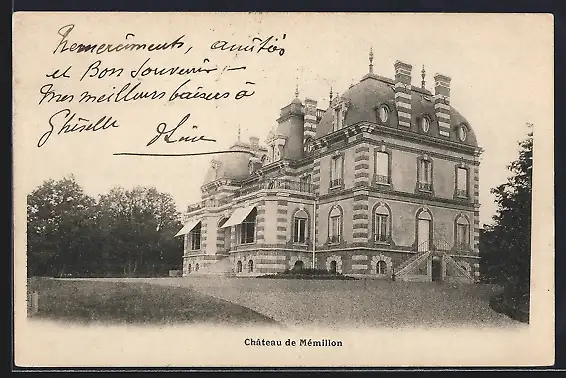 Remerciments, amitiés
et Bon Souvenir –
Mes meilleurs baisers à
Ghiselle
Château de Mémillon